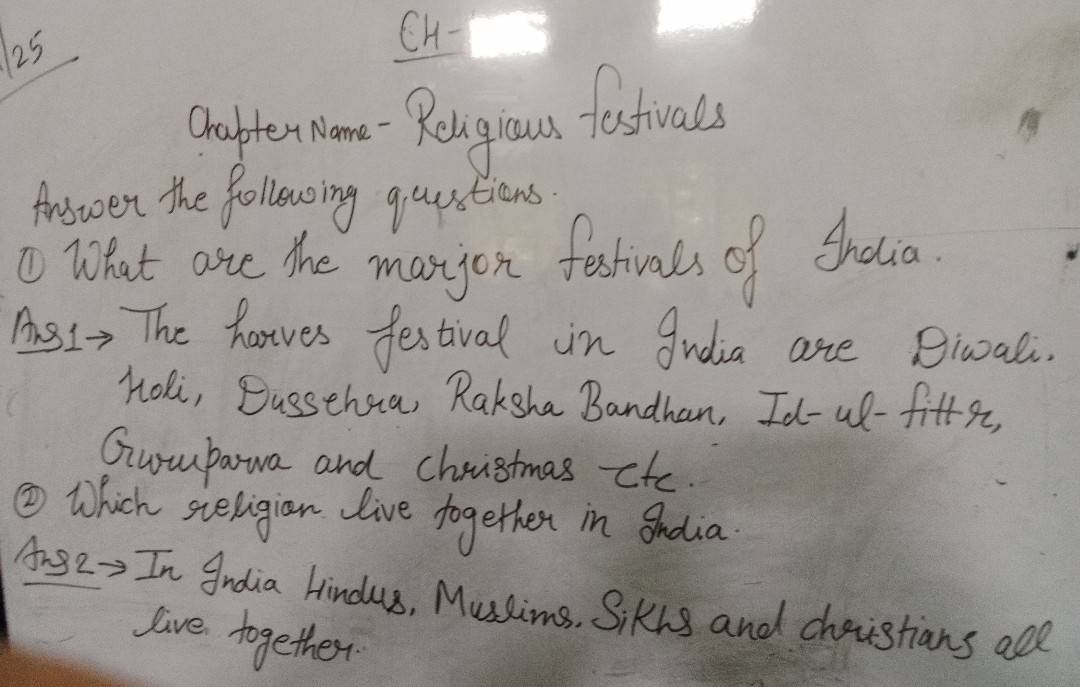 /25
CH-
Chapter Name - Religious festivals
Answer the following questions.
① What are the marjor festivals of India.
Ans1→ The harves festival in India are Diwali.
Holi, Dussehra, Raksha Bandhan, Id-ul-fittr,
Gurupurva and christmas etc.
② Which religion live together in India.
Ans2→ In India Hindus, Muslims, Sikhs and christians all
live together.